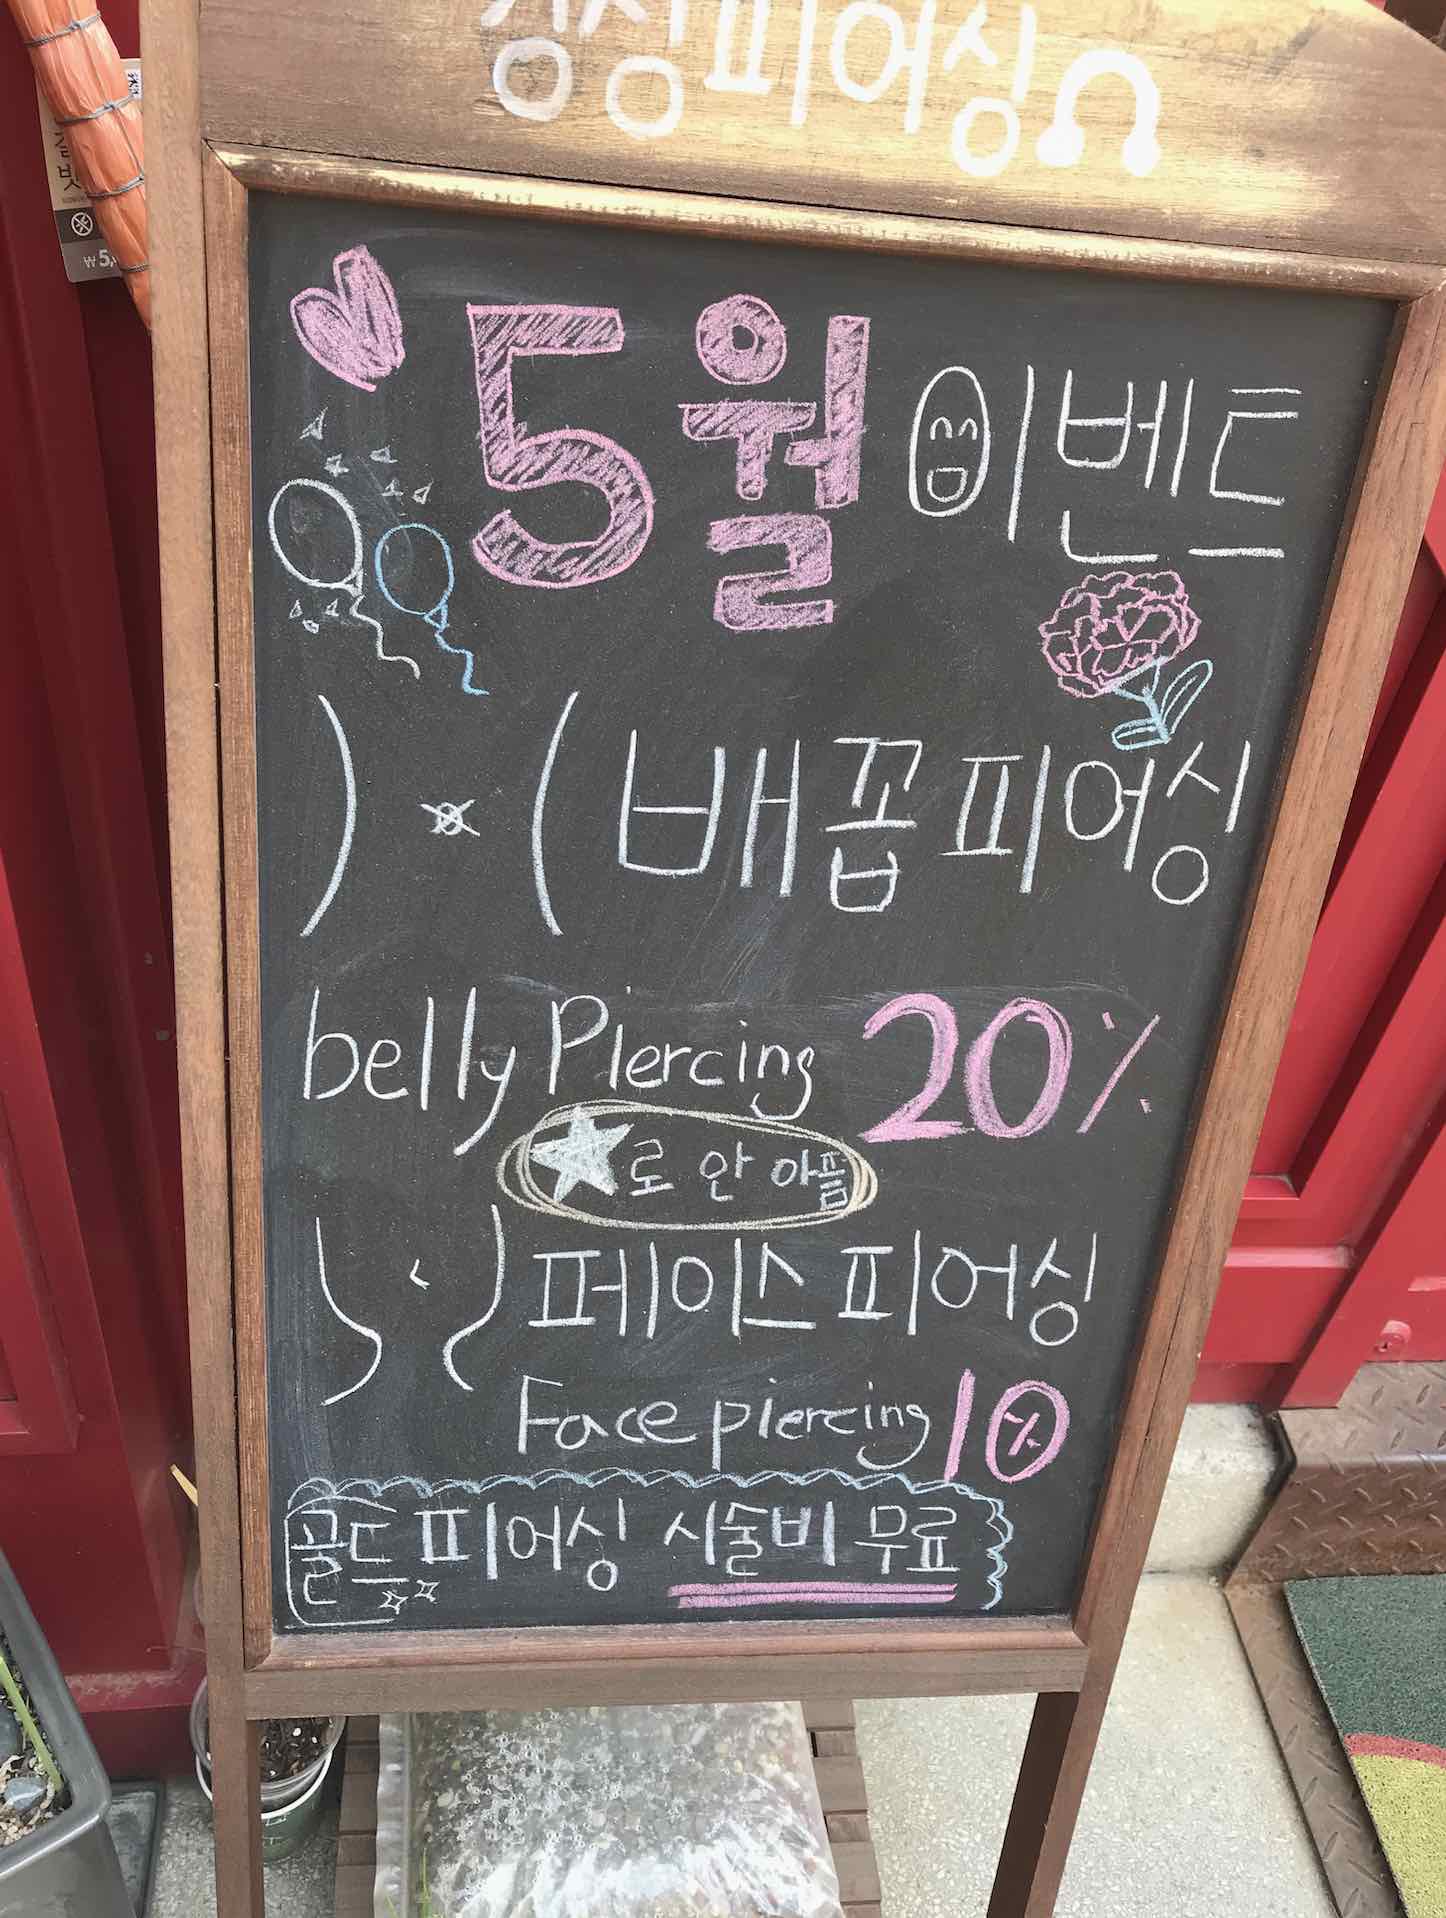 피어싱
5월 이벤트
배꼽피어싱
belly Piercing 20%
★로 안 아픔
페이스 피어싱
Face piercing 10%
골드 피어싱 시술비 무료
₩5,